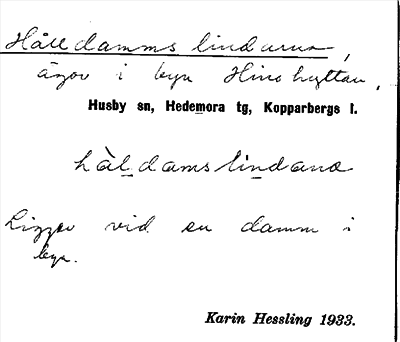 Hålldammslindarna,
ängar i byn Hinshyttan,
Husby sn, Hedemora tg, Kopparbergs l.
hàldamslindana
Ligger vid en damm i
byn.
Karin Hessling 1933.